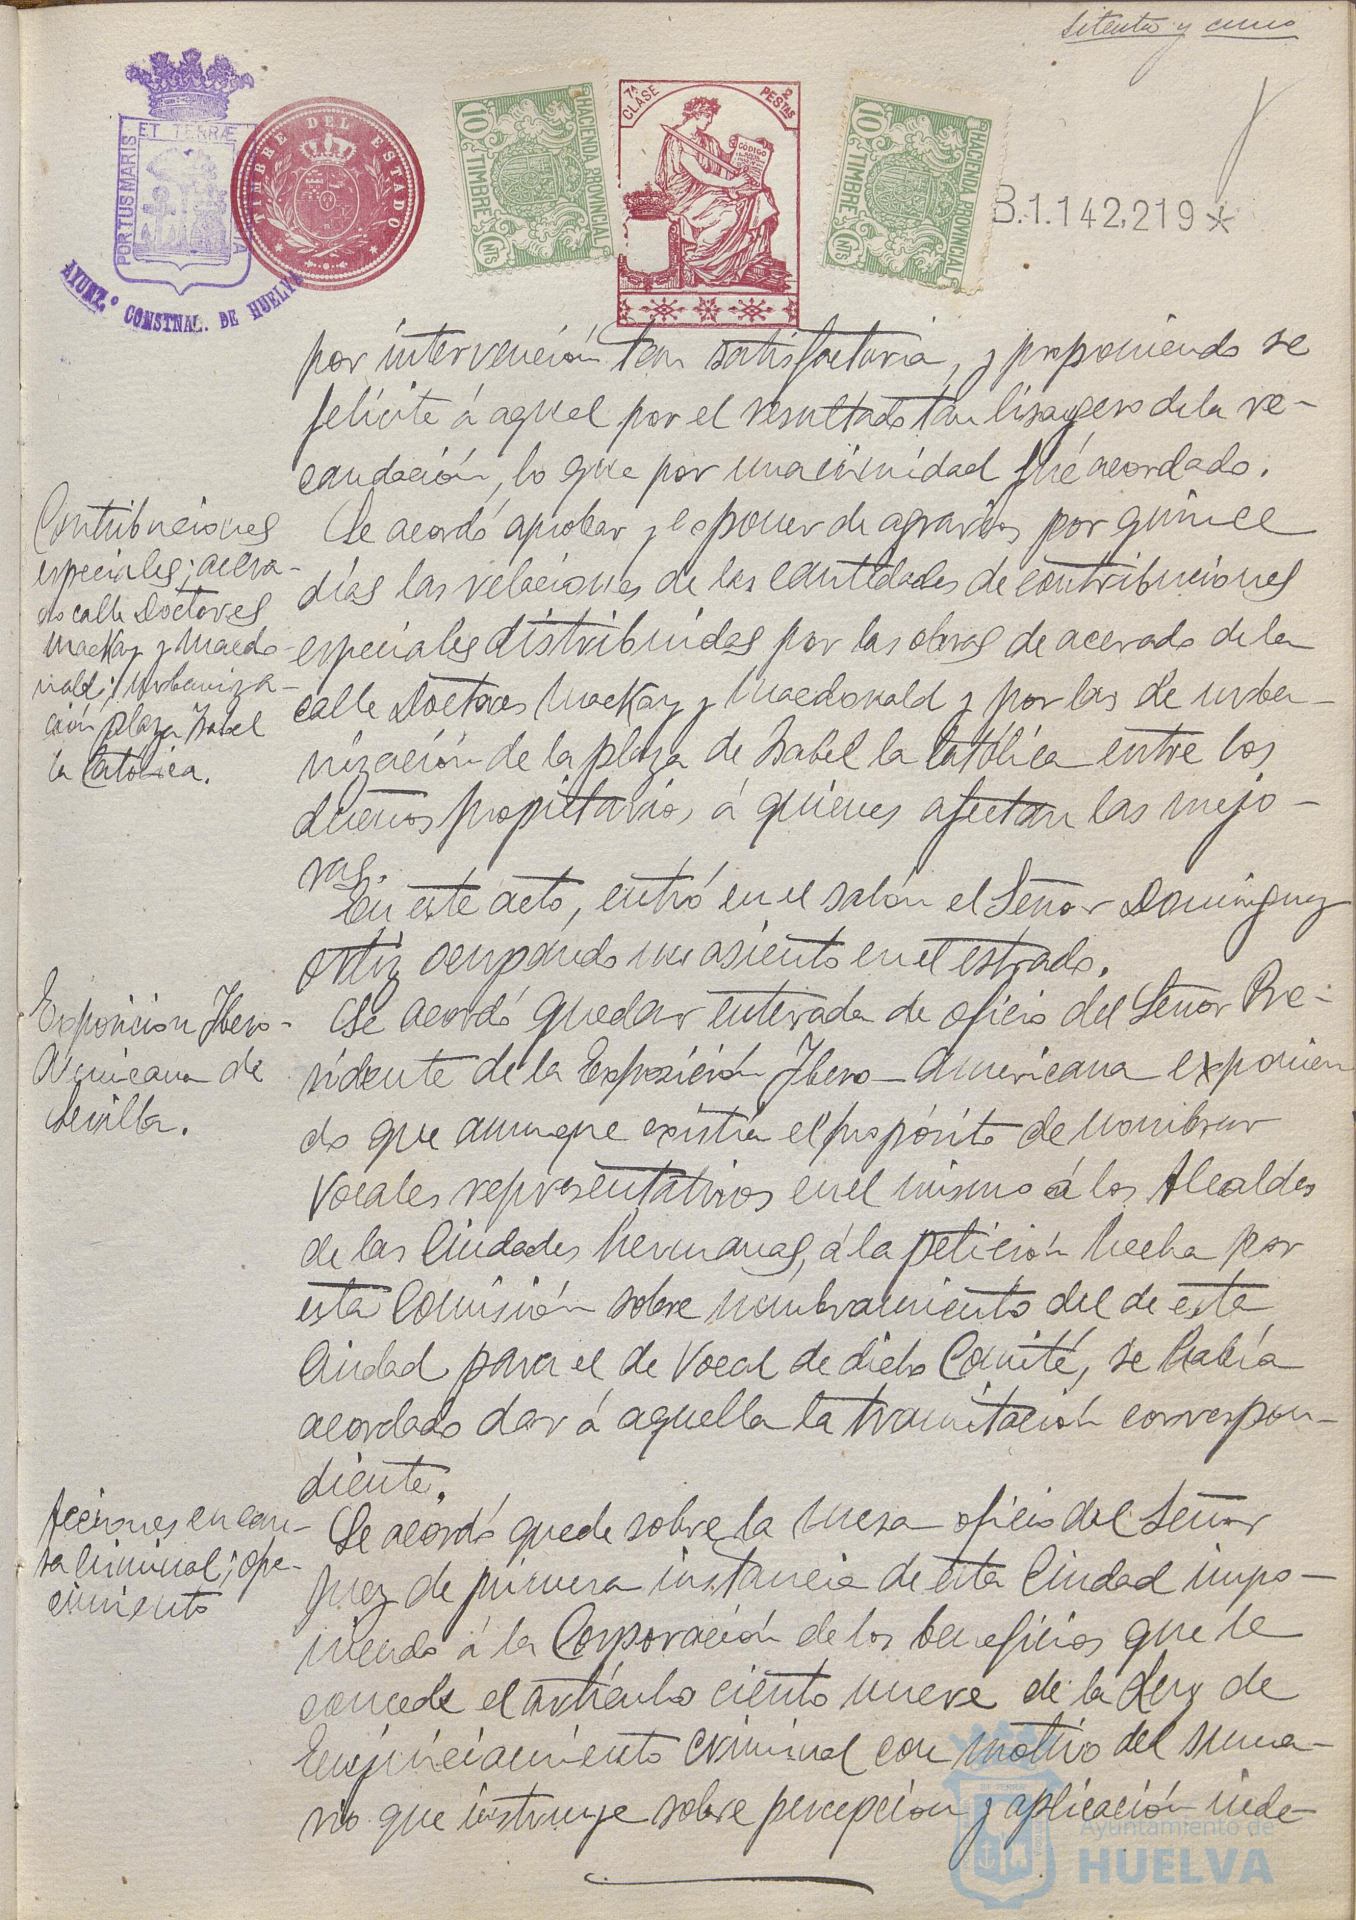 setenta y cinco
ET TERRÆ
PORTUS MARIS
AYUNT.º CONSTNAL. DE HUELVA
TIMBRE DEL ESTADO
HACIENDA PROVINCIAL
10 TIMBRE CNTS
7ª CLASE
2 PESTAS
CÓDIGO
HACIENDA PROVINCIAL
10 TIMBRE CNTS
B.1.142,219*
por intervención tan satisfactoria, y proponiendo se
felicite á aquel por el resultado tan lisongero de la re-
caudación, lo que por unanimidad fué acordado.
Contribuciones
especiales; acera-
do calle Doctores
Mackay y Macdo-
nald; urbaniza-
ción plaza Isabel
la Católica.
Se acordó aprobar y exponer de agravios por quince
días las relaciones de las cantidades de contribuciones
especiales distribuidas por las obras de acerado de la
calle Doctores Mackay y Macdonald y por las de urba-
nización de la plaza de Isabel la Católica entre los
dueños propietarios á quienes afectan las mejo-
ras.
En este acto, entró en el salón el Señor Dominguez
Ortiz ocupando un asiento en el estrado.
Exposición Ibero-
Americana de
Sevilla.
Se acordó quedar enterada de oficio del Señor Pre-
sidente de la Exposición Ibero-Americana exponien
do que aunque existía el propósito de nombrar
Vocales representativos en el mismo á los Alcaldes
de las Ciudades hermanas, á la petición hecha por
esta Comisión sobre nombramiento del de esta
Ciudad para el de Vocal de dicho Comité, se había
acordado dar á aquella la tramitación correspon-
diente.
Acciones en cau-
sa criminal; ofre-
cimiento
Se acordó quede sobre la mesa oficio del Señor
Juez de primera instancia de esta Ciudad impo-
niendo á la Corporación de los beneficios que le
concede el artículo ciento nueve de la Ley de
Enjuiciamiento criminal con motivo del suma-
rio que instruye sobre percepción y aplicación inde-
Ayuntamiento de
HUELVA